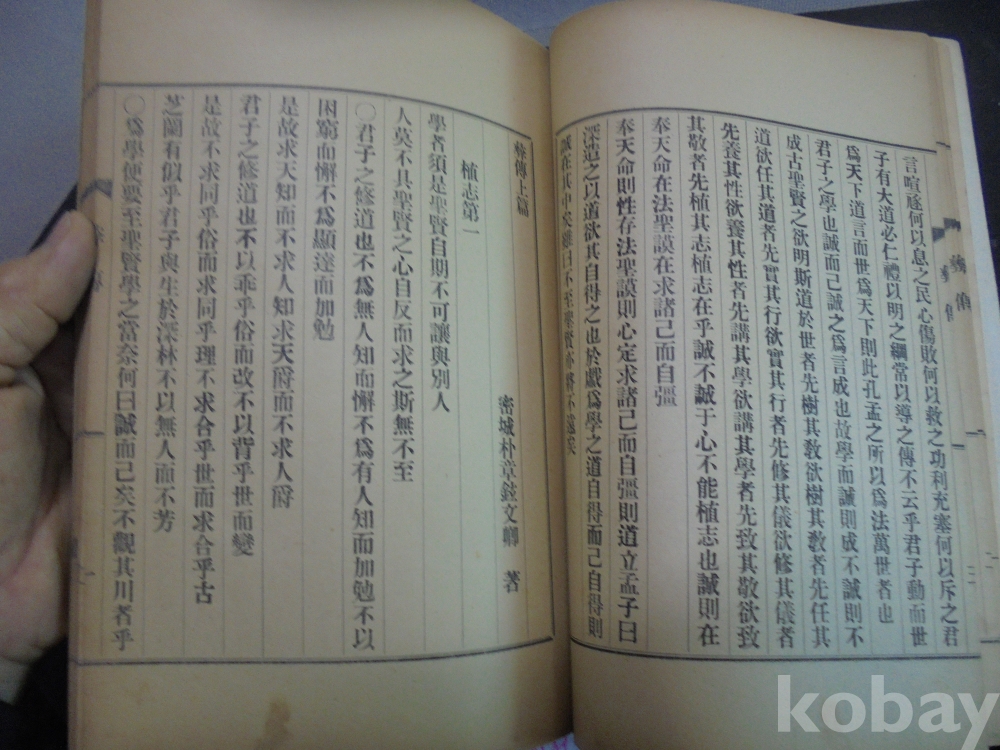 言喧豗何以息之民心傷敗何以救之功利充塞何以斥之君
子有大道必仁禮以明之綱常以導之傳不云乎君子動而世
爲天下道言而世爲天下則此孔孟之所以爲法萬世者也
君子之學也誠而已誠之爲言成也故學而誠則成不誠則不
成古聖賢之欲明斯道於世者先樹其敎欲樹其敎者先任其
道欲任其道者先實其行欲實其行者先修其儀欲修其儀者
先養其性欲養其性者先講其學欲講其學者先致其敬欲致
其敬者先植其志植志在乎誠不誠于心不能植志也誠則在
奉天命在法聖謨在求諸己而自彊
奉天命則性存法聖謨則心定求諸己而自彊則道立孟子曰
深造之以道欲其自得之也於戲爲學之道自得而己自得則
誠在其中矣雖曰不至聖賢亦將不遠矣
傳上篇
密城朴章鉉文卿 著
植志第一
學者須是聖賢自期不可讓與別人
人莫不具聖賢之心自反而求之斯無不至
〇君子之修道也不爲無人知而懈不爲有人知而加勉不以
困窮而懈不爲顯達而加勉
是故求天知而不求人知求天爵而不求人爵
君子之修道也不以乖乎俗而改不以背乎世而變
是故不求同乎俗而求同乎理不求合乎世而求合乎古
芝蘭有似乎君子與生於深林不以無人而不芳
〇爲學便要至聖賢學之當奈何曰誠而己矣不觀其川者乎
kobay